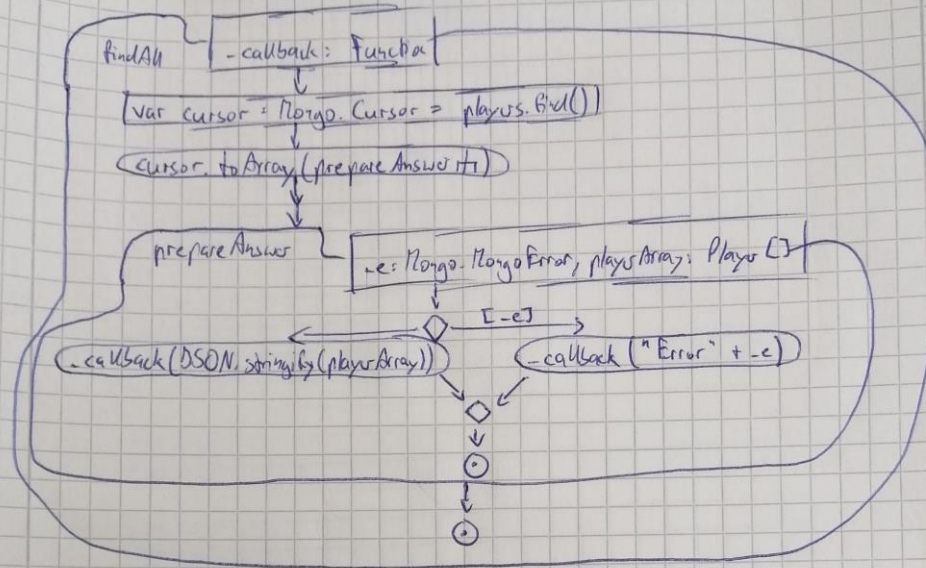 findAll
_callback: Function
var cursor: Mongo.Cursor = players.find()
cursor.toArray(prepareAnswer
prepareAnswer
_e: Mongo.MongoError, playerArray: Player[]
[_e]
_callback(JSON.stringify(playerArray))
_callback("Error" + _e)